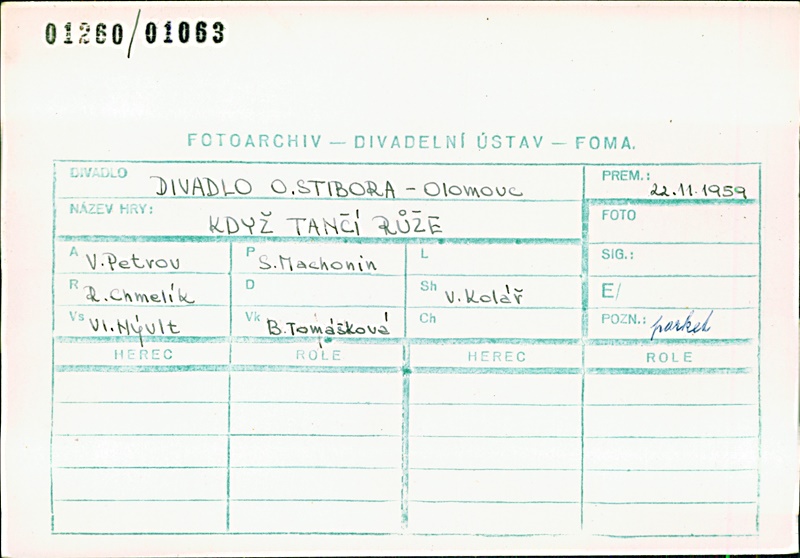 01260/01063
FOTOARCHIV — DIVADELNÍ ÚSTAV — FOMA.
DIVADLO DIVADLO O.STIBORA - Olomouc PREM.: 22.11.1959
NÁZEV HRY: KDYŽ TANČÍ RŮŽE FOTO
A V.Petrov P S.Machonin L SIG.:
R R.Chmelík D Sh V.Kolář E/
Vs Vl.Nývlt Vk B.Tomášková Ch POZN.: parket
HEREC ROLE HEREC ROLE